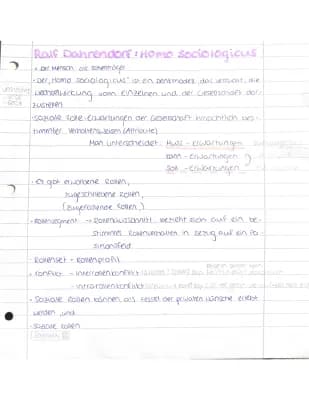 Ralf Dahrendorf: Homo Sociologicus
• Der Mensch als Rollenträger
• Der „Homo Sociologicus“ ist ein Denkmodell, das versucht, die
Wechselwirkung vom Einzelnen und der Gesellschaft dar-
zustellen
• Soziale Rolle: Erwartungen der Gesellschaft hinsichtlich bes-
timmter Verhaltensweisen (Attribute)
Man unterscheidet: Muss - Erwartungen
Kann - Erwartungen
Soll - Erwartungen
• Es gibt erworbene Rollen,
zugeschriebene Rollen,
(zugefallende Rollen)
• Rollensegment → Rollenausschnitt, bezieht sich auf ein be-
stimmtes Rollenverhalten in Bezug auf ein Po-
sitionsfeld
• Rollenset - Rollenprofil
• Konflikt → Interrollenkonflikt
→ Intrarollenkonflikt
• Soziale Rollen können als Fessel der privaten Wünsche erlebt
werden, und
• Soziale Rollen